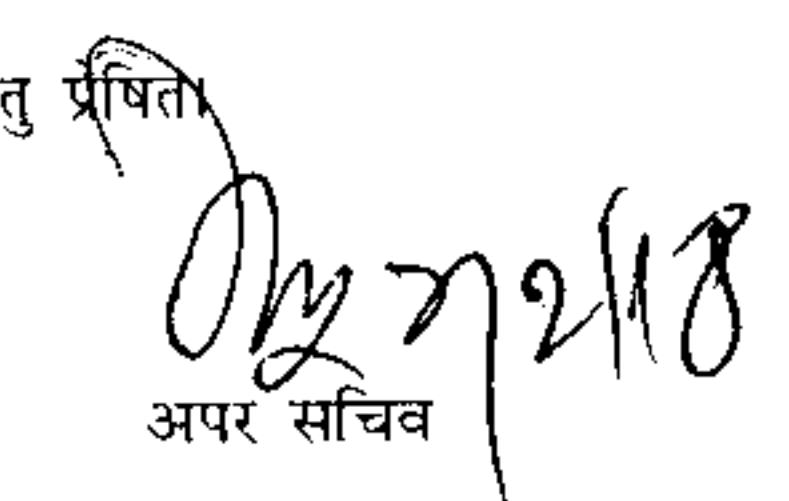 तु प्रेषित।
अपर सचिव